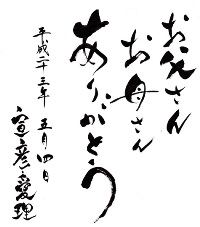 お父さん
お母さん
ありがとう
平成二十三年 五月四日
宣彦 愛理